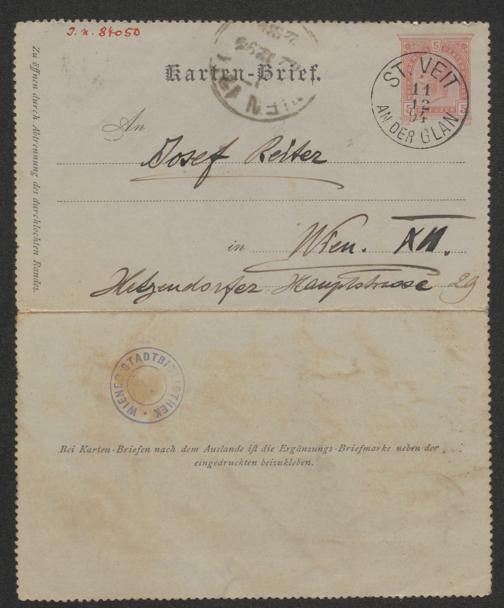 J. n. 84050
Karten-Brief.
ST. VEIT
11
12
94
AN DER GLAN
5
5 5
WIEN
An
Josef Reiter
in Wien. XII.
Hetzendorfer Hauptstrasse 29
Zu öffnen durch Abtrennung des durchlochten Randes.
WIENER STADTBIBLIOTHEK
Bei Karten-Briefen nach dem Auslande iſt die Ergänzungs-Briefmarke neben der
eingedruckten beizukleben.